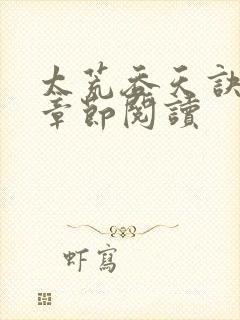 太荒吞天訣
章節閱讀
虾寫